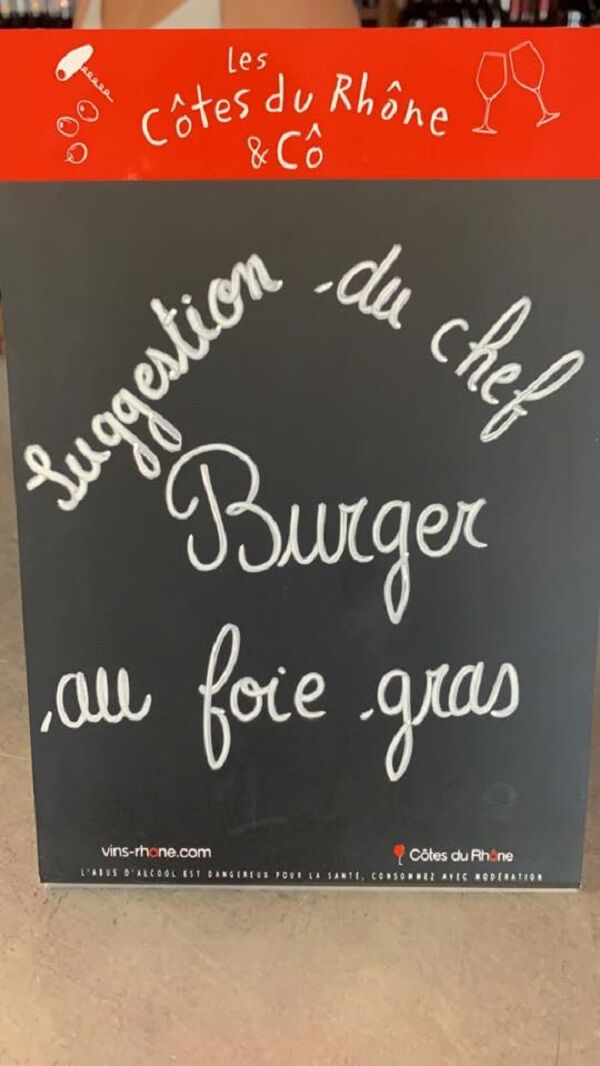 Les
Côtes du Rhône
& Cô
Suggestion du chef
Burger
au foie gras
vins-rhône.com
Côtes du Rhône
L'ABUS D'ALCOOL EST DANGEREUX POUR LA SANTÉ, CONSOMMEZ AVEC MODÉRATION